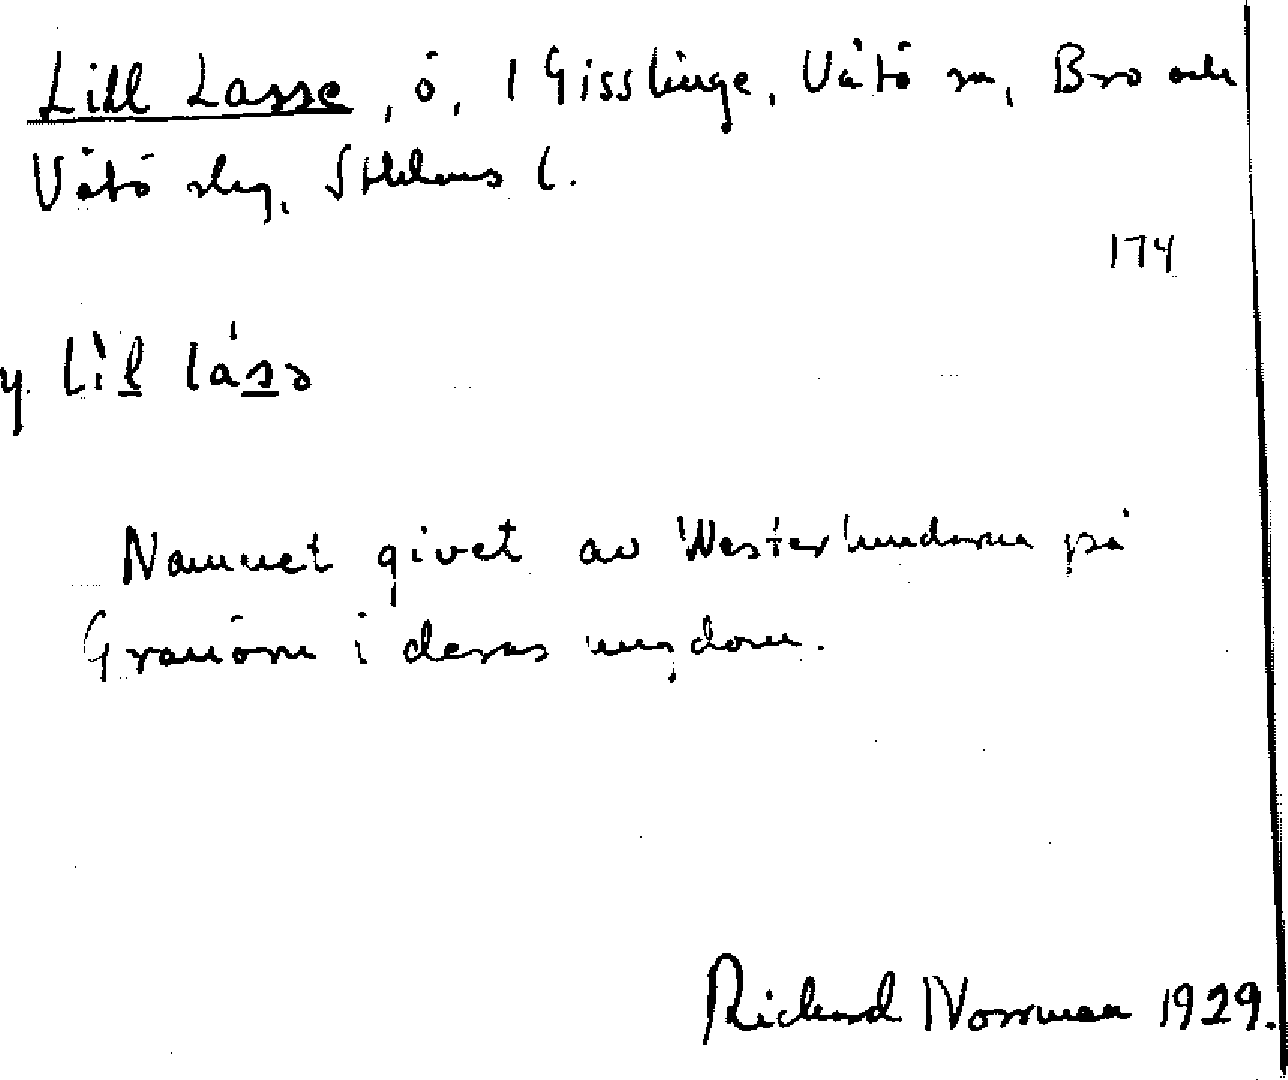 Lill Lasse, ö, 1 Gisslinge, Vätö sn, Bro och
Vätö slg, Sthlms l.
174
y. lìl lásə
Namnet givet av Westerlundarna på
Granön i deras ungdom.
Richard Norrman 1929.